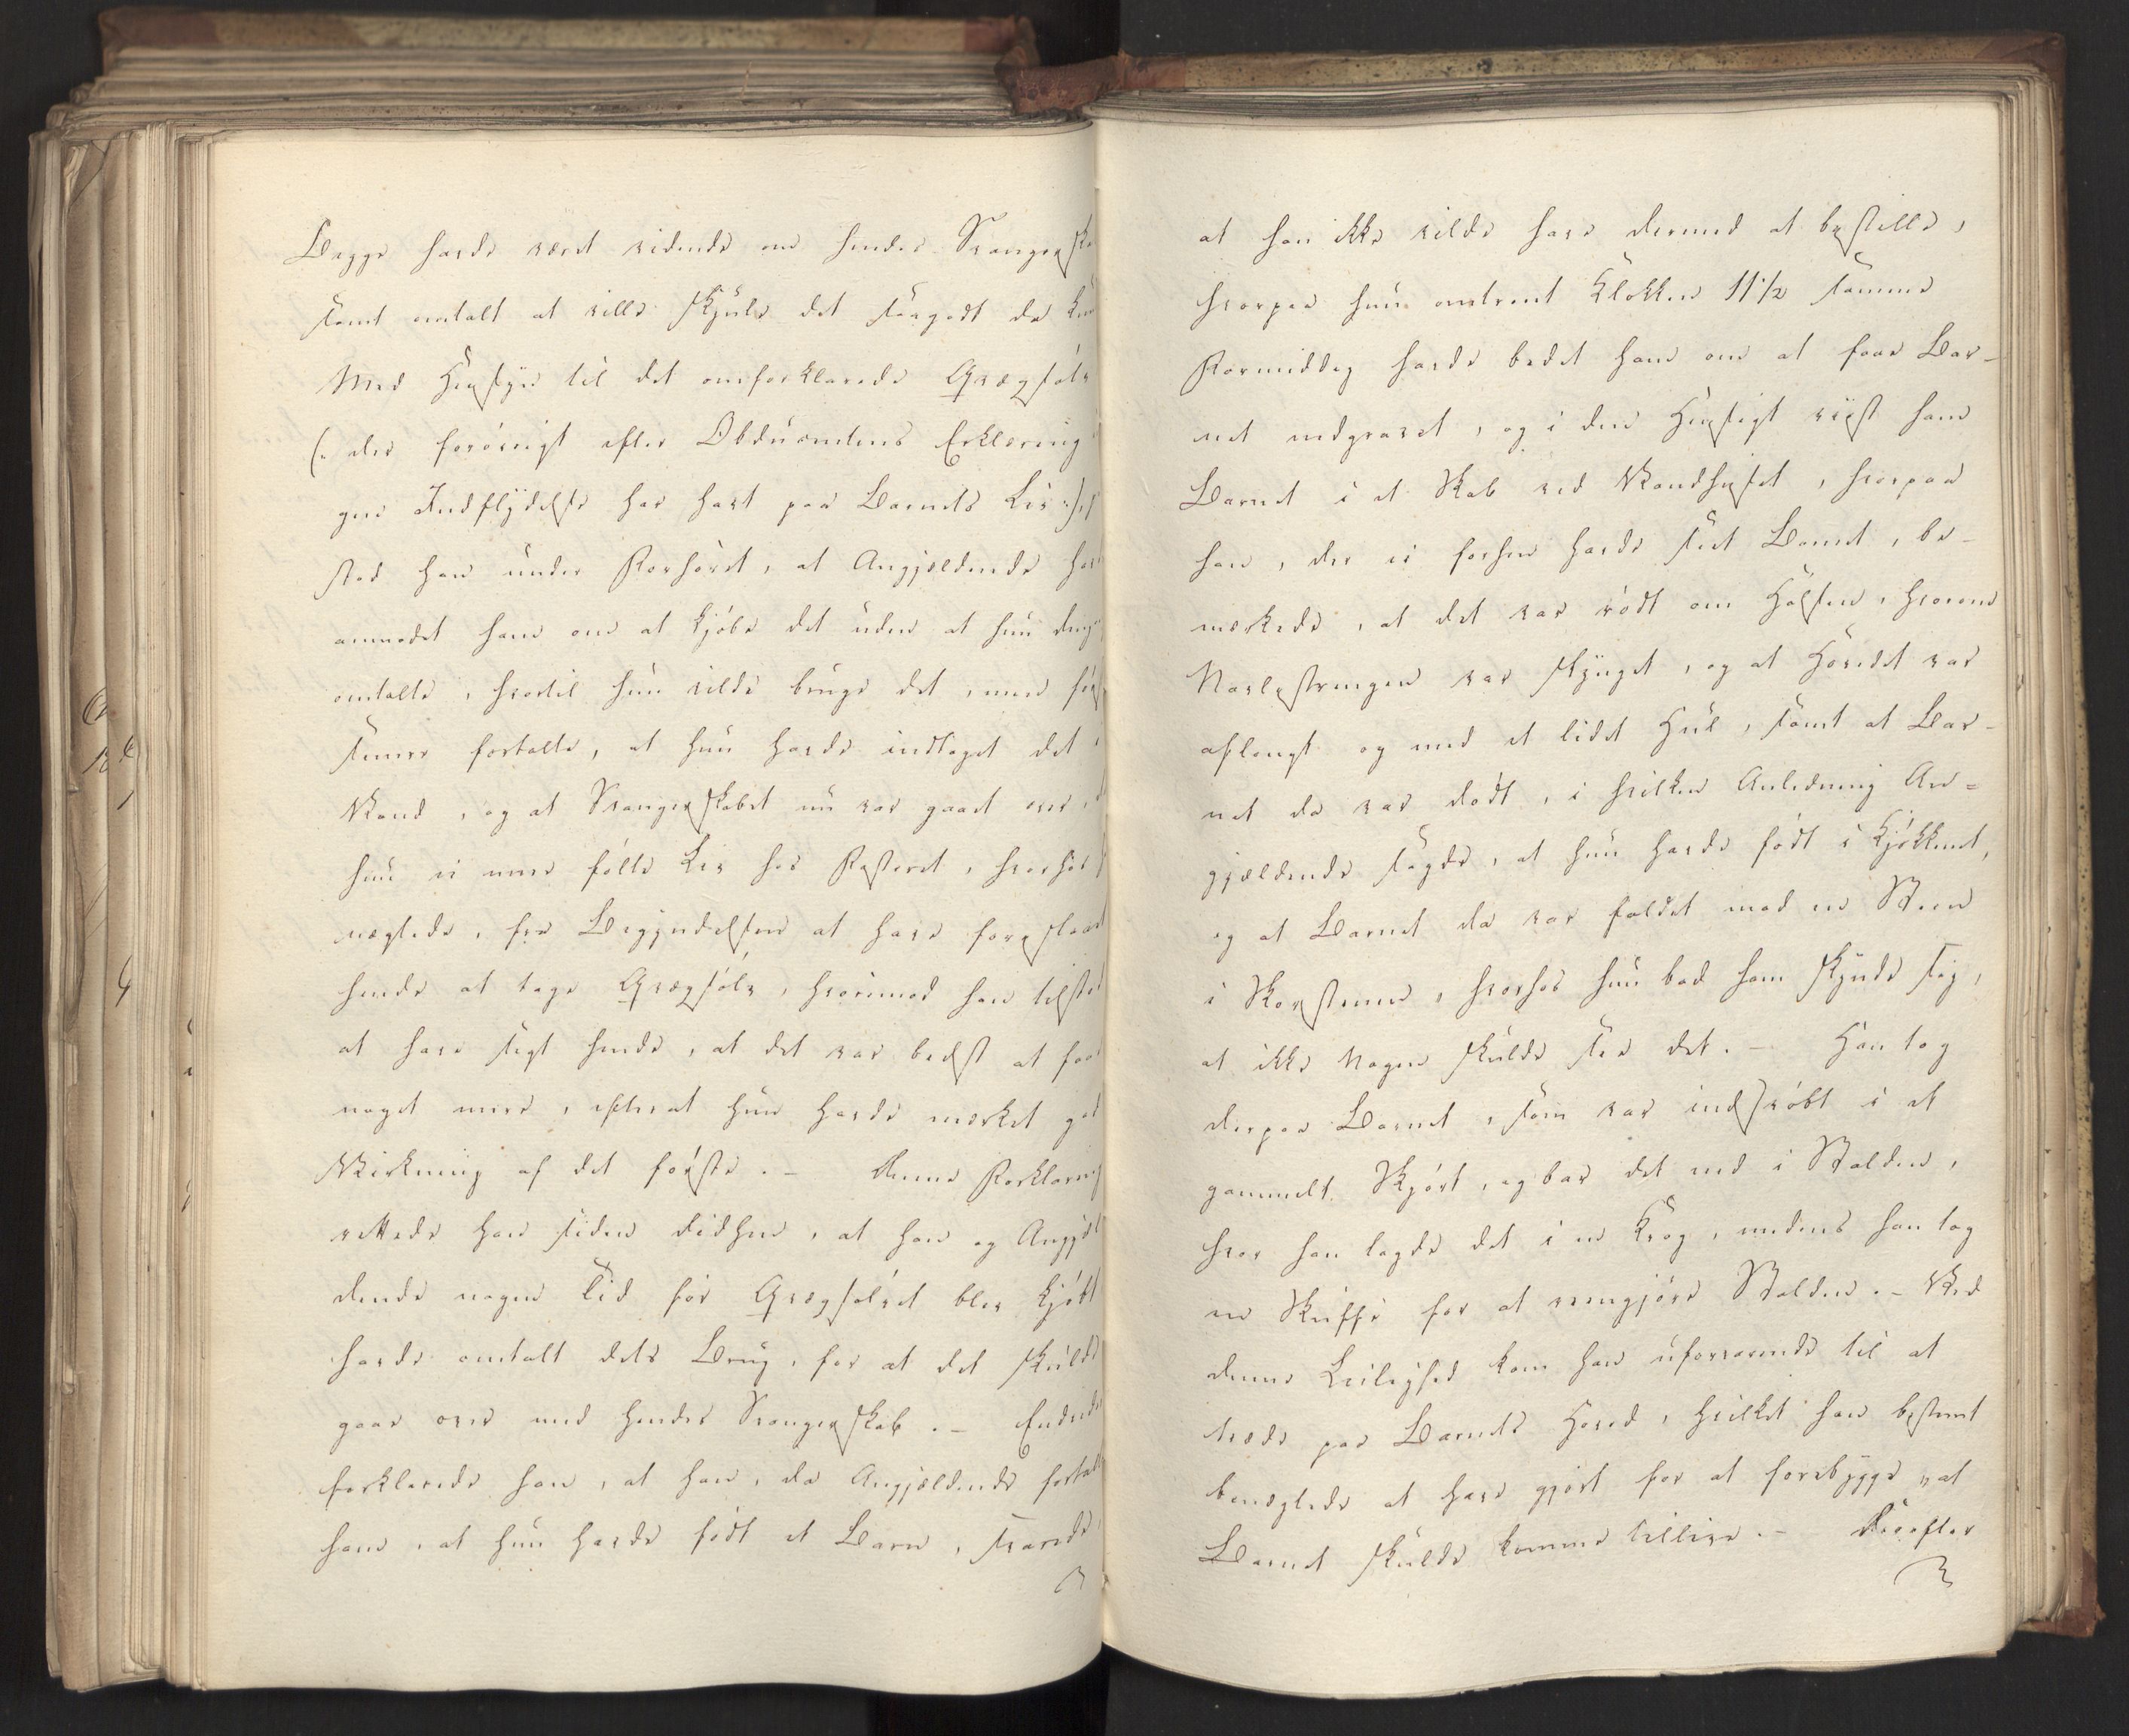 Begge havde været vidende om hendes Svangerska
samt omtalt at ville skjule det saagodt de kun
Med Hensyn til det omforklarede Qvægsølv
(: der forøvrigt efter Obducentens Erklæring
gen Indflydelse har havt paa Barnets Liv :)
stod han under Forhøret, at Angjældende hav
anmodet ham om at kjøbe det uden at hun deng
omtalte, hvortil hun vilde bruge det, men
senere fortalte, at hun havde indtaget det i
Vand, og at Svangerskabet nu var gaaet over,
hun ei mere følte Liv hos Fosteret, hvorhos
nægtede, fra Begyndelsen at have foreslaaet
hende at tage Qvægsølv, hvorimod han tilstod
at have sagt hende, at det var bedst at faae
noget mere, efterat hun havde mærket god
Virkning af det første. - Denne Forklaring
rettede han siden didhen, at han og Angjæl
dende nogen Tid før Qvægsølvet blev kjøbt
havde omtalt dets Brug, for at det skulde
gaae over med hendes Svangerskab. - Endvidere
forklarede han, at han, da Angjældende fortalte
ham, at hun havde født et Barn, svarede,
at han ikke vilde have dermed at bestille,
hvorpaa hun omtrent Klokken 11 1/2 samme
Formiddag havde bedet ham om at faae Bar-
net nedgravet, og i den Hensigt viist ham
Barnet i et Skab ved Vandhuset, hvorpaa
han, der ei forhen havde seet Barnet, be-
mærkede, at det var rødt om Halsen, hvorom
Navlestrengen var slynget, og at Hovedet var
aflangt og med et lidet Hul, samt at Bar-
net da var dødt, i hvilken Anledning An-
gjældende sagde, at hun havde født i Kjøkkenet,
og at Barnet da var faldet mod en Steen
i Skorstenen, hvorhos hun bad ham skynde sig,
at ikke Nogen skulde see det. - Han tog
derpaa Barnet, som var indsvøbt i et
gammelt Skjørt, og bar det ned i Stalden,
hvor han lagde det i en Krog, medens han tog
en Skuffe for at reengjøre Stalden. - Ved
denne Leilighed kom han uforvarende til at
træde paa Barnets Hoved, hvilket han bestemt
benægtede at have gjort for at forebygge, at
Barnet skulde komme tillive. - Derefter